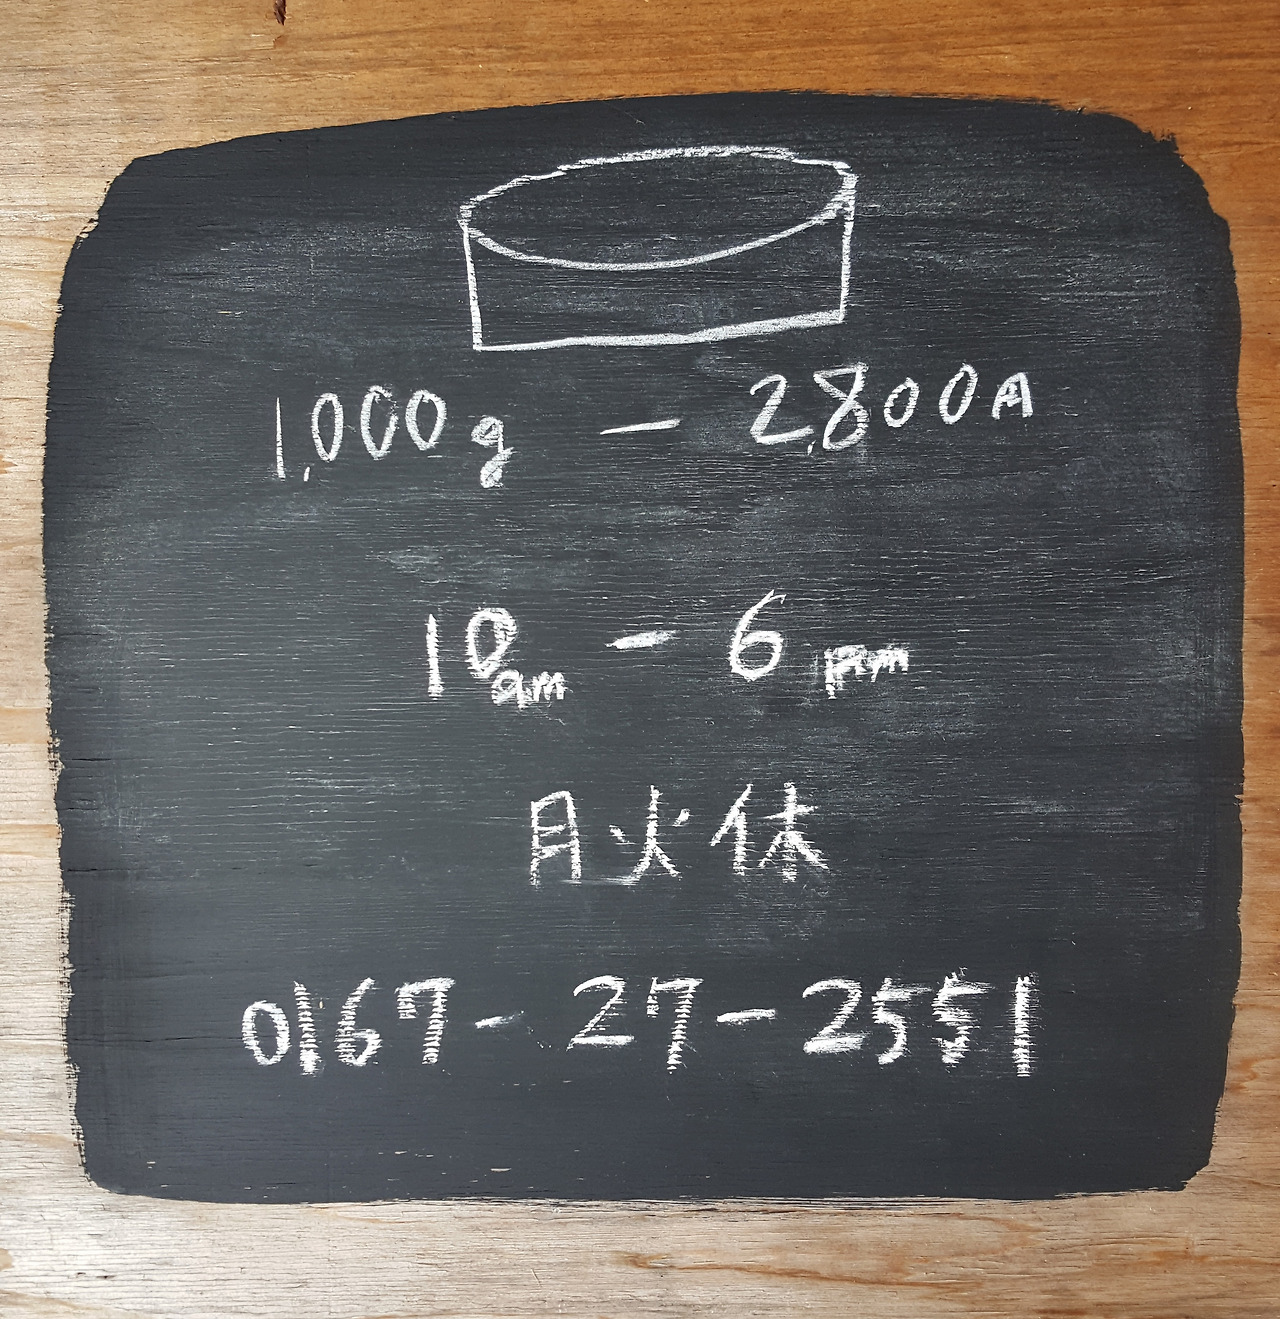 1,000g - 2,800円
10am - 6pm
月火休
0167-27-2551